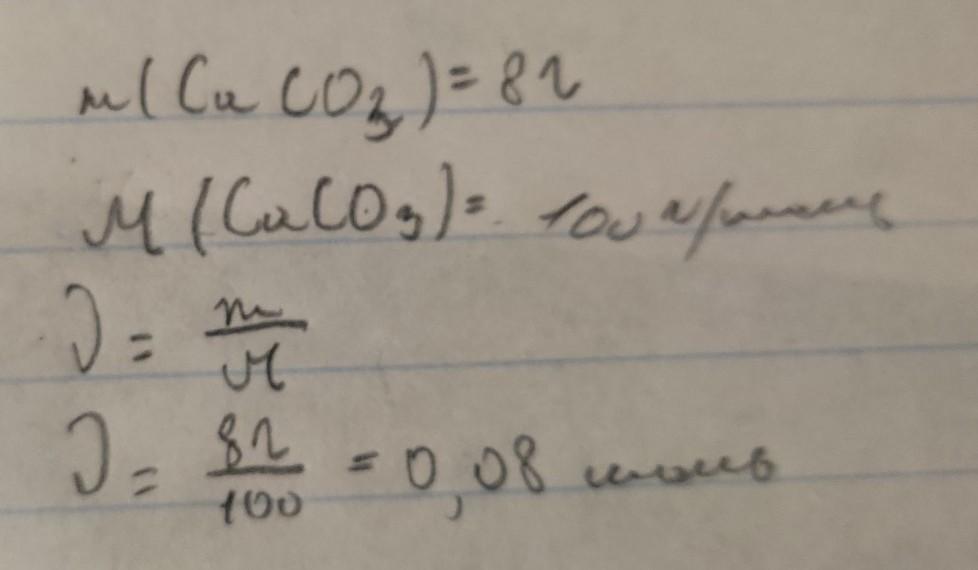 m(CaCO₃)=8г
M(CaCO₃)= 100 г/моль
ν = m/M
ν = 8г/100 = 0,08 моль